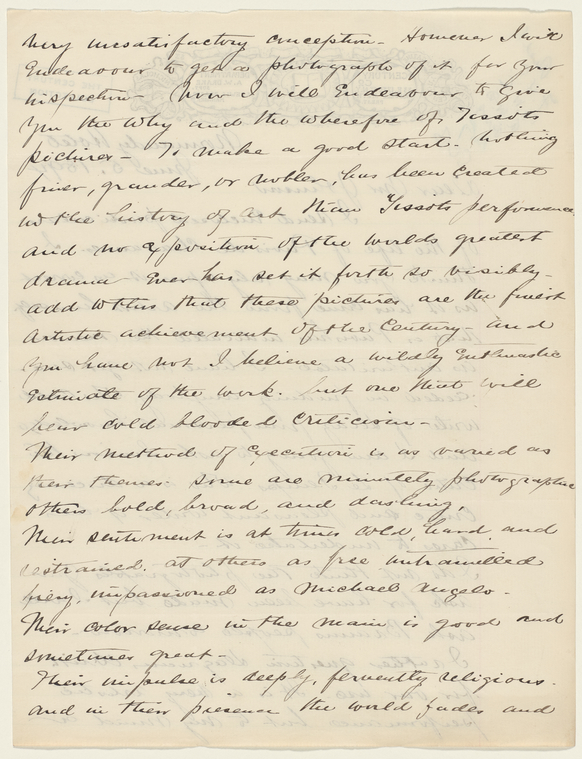 very unsatisfactory conception - However I will
Endeavour to get a photograph of it for your
inspection - Now I will Endeavour to Give
you the Why and the Wherefore of Tissots
pictures - To make a good start - Nothing
finer, grander, or nobler, has been created
in the history of art than Tissots performance
and no Exposition of the worlds greatest
drama Ever has set it forth so visibly -
add to this that these pictures are the finest
Artistic achievement of the Century - and
you have not I believe a wildly Enthusiastic
Estimate of the work. but one that will
bear cold blooded Criticism -
Their method of Execution is as varied as
their themes: some are minutely photographic
others bold, broad, and dashing,
Their sentiment is at times cold, hard and
restrained. at others as free untramelled
fiery, impassioned as Michael Angelo -
Their color sense in the main is good and
sometimes great -
Their impulse is deeply, fervently religious.
and in their presence the world fades and